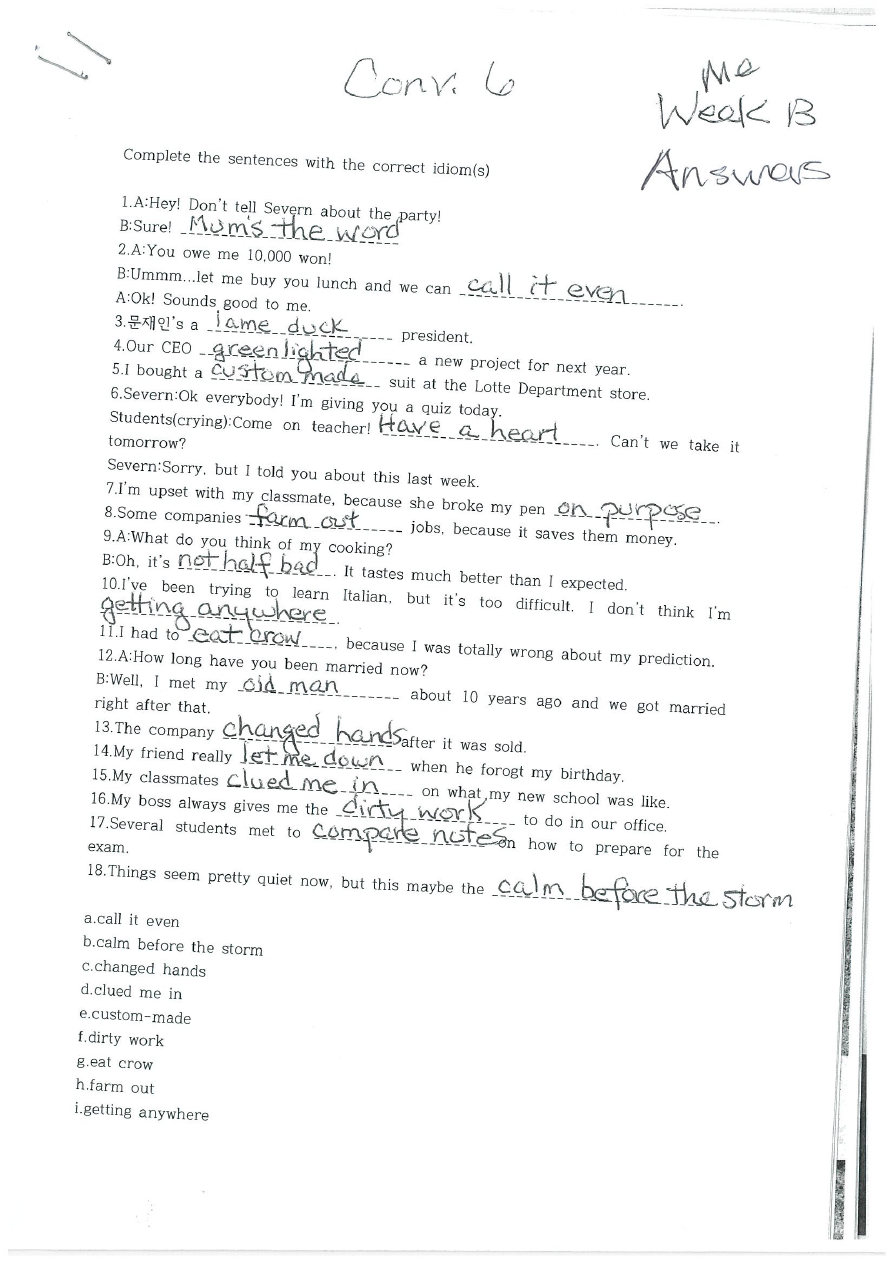 Conv. 6
Me
Week B
Answers
Complete the sentences with the correct idiom(s)
1.A:Hey! Don't tell Severn about the party!
B:Sure! Mum's the word
2.A:You owe me 10,000 won!
B:Ummm...let me buy you lunch and we can call it even.
A:Ok! Sounds good to me.
3.문재인's a lame duck president.
4.Our CEO greenlighted a new project for next year.
5.I bought a custom made suit at the Lotte Department store.
6.Severn:Ok everybody! I'm giving you a quiz today.
Students(crying):Come on teacher! Have a heart. Can't we take it
tomorrow?
Severn:Sorry, but I told you about this last week.
7.I'm upset with my classmate, because she broke my pen on purpose.
8.Some companies farm out jobs, because it saves them money.
9.A:What do you think of my cooking?
B:Oh, it's not half bad. It tastes much better than I expected.
10.I've been trying to learn Italian, but it's too difficult. I don't think I'm
getting anywhere.
11.I had to eat crow, because I was totally wrong about my prediction.
12.A:How long have you been married now?
B:Well, I met my old man about 10 years ago and we got married
right after that.
13.The company changed hands after it was sold.
14.My friend really let me down when he forogt my birthday.
15.My classmates clued me in on what my new school was like.
16.My boss always gives me the dirty work to do in our office.
17.Several students met to compare notes on how to prepare for the
exam.
18.Things seem pretty quiet now, but this maybe the calm before the storm
a.call it even
b.calm before the storm
c.changed hands
d.clued me in
e.custom-made
f.dirty work
g.eat crow
h.farm out
i.getting anywhere